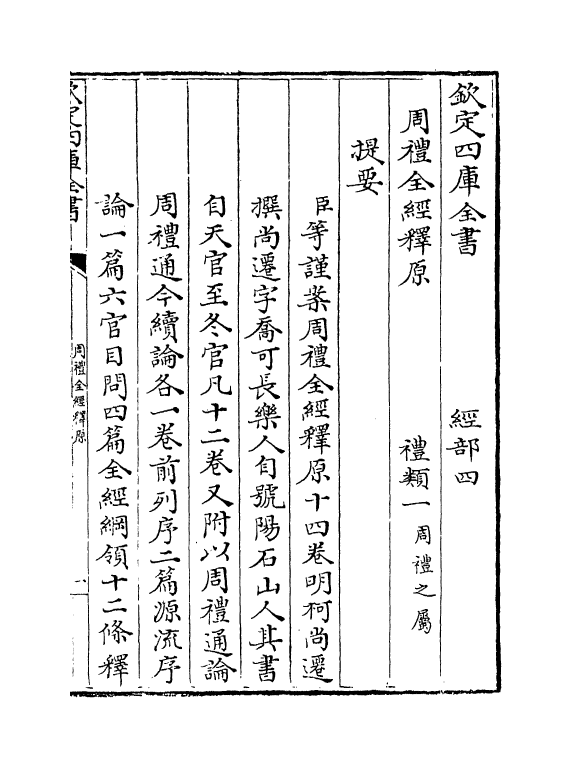 欽定四庫全書　　　經部四
周禮全經釋原　　　禮類一周禮之屬
提要
臣等謹案周禮全經釋原十四卷明柯尚遷
撰尚遷字喬可長樂人自號陽石山人其書
自天官至冬官凡十二卷又附以周禮通論
周禮通今續論各一卷前列序二篇源流序
論一篇六官目問四篇全經綱領十二條釋
欽定四庫全書
周禮全經釋原